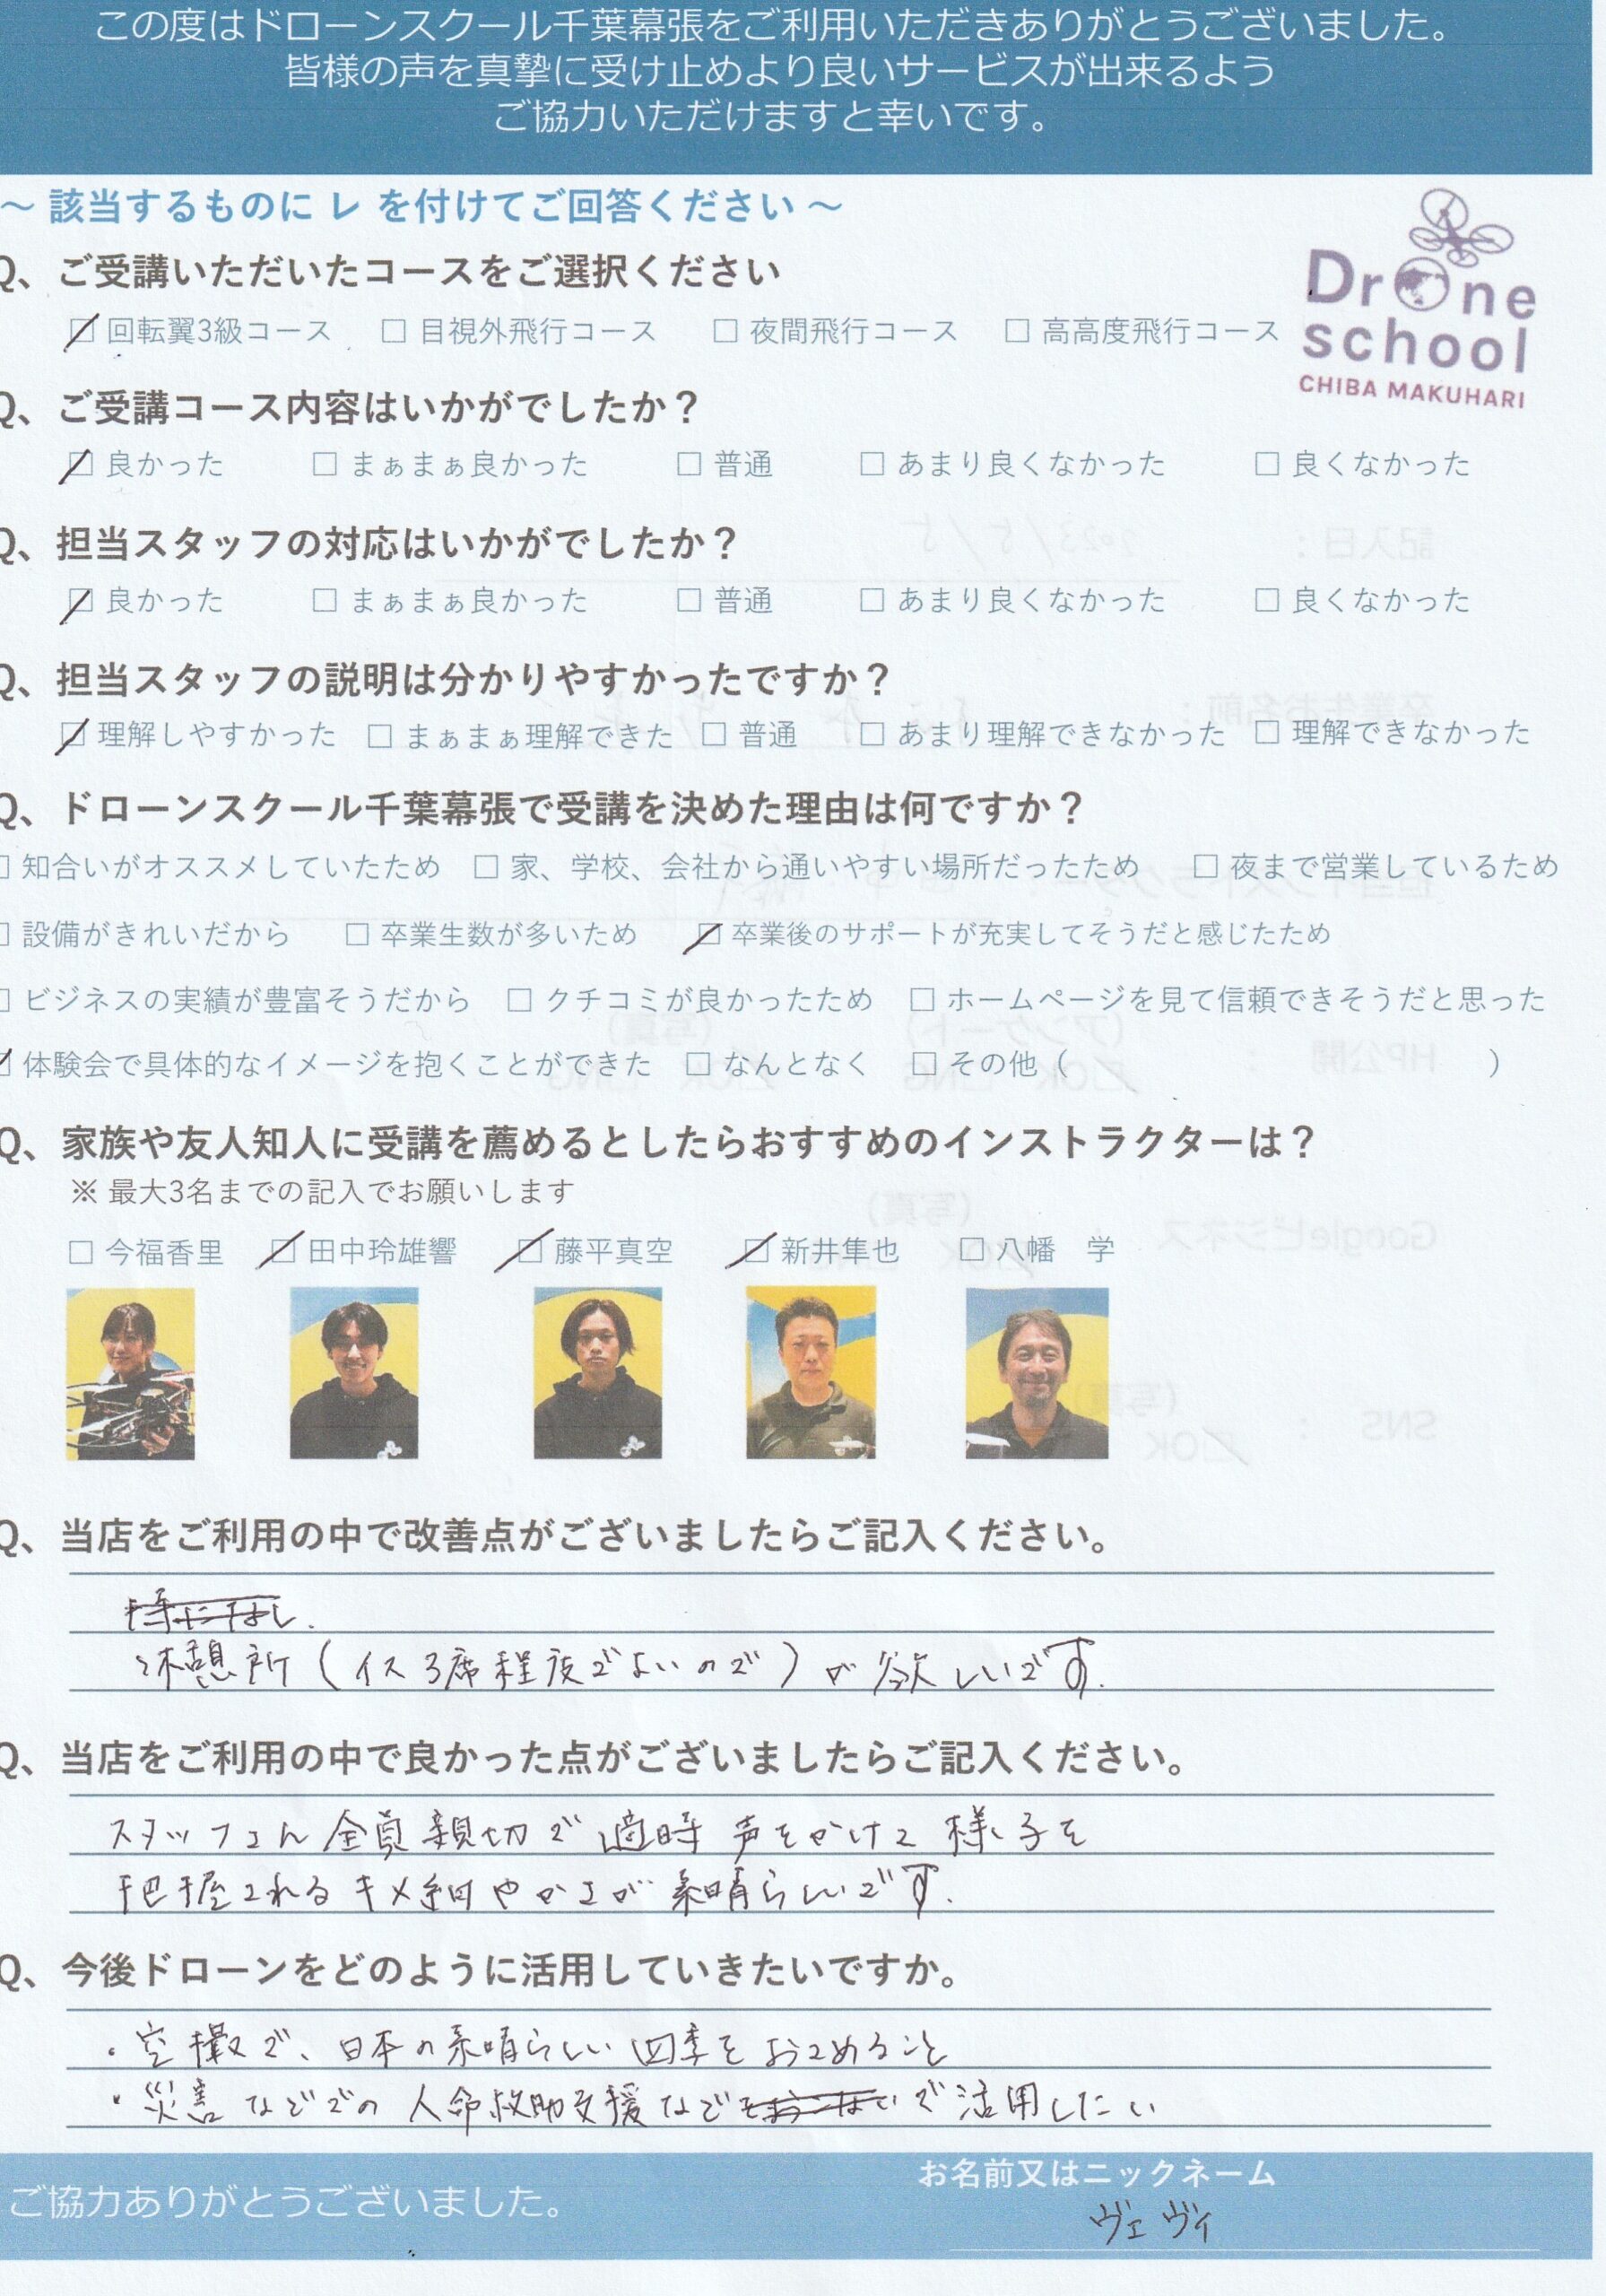 この度はドローンスクール千葉幕張をご利用いただきありがとうございました。
皆様の声を真摯に受け止めより良いサービスが出来るよう
ご協力いただけますと幸いです。
～ 該当するものに レ を付けてご回答ください ～
Drone
school
CHIBA MAKUHARI
Q、ご受講いただいたコースをご選択ください
☑ 回転翼3級コース □ 目視外飛行コース □ 夜間飛行コース □ 高高度飛行コース
Q、ご受講コース内容はいかがでしたか？
☑ 良かった □ まぁまぁ良かった □ 普通 □ あまり良くなかった □ 良くなかった
Q、担当スタッフの対応はいかがでしたか？
☑ 良かった □ まぁまぁ良かった □ 普通 □ あまり良くなかった □ 良くなかった
Q、担当スタッフの説明は分かりやすかったですか？
☑ 理解しやすかった □ まぁまぁ理解できた □ 普通 □ あまり理解できなかった □ 理解できなかった
Q、ドローンスクール千葉幕張で受講を決めた理由は何ですか？
□ 知合いがオススメしていたため □ 家、学校、会社から通いやすい場所だったため □ 夜まで営業しているため
□ 設備がきれいだから □ 卒業生数が多いため ☑ 卒業後のサポートが充実してそうだと感じたため
□ ビジネスの実績が豊富そうだから □ クチコミが良かったため □ ホームページを見て信頼できそうだと思った
☑ 体験会で具体的なイメージを抱くことができた □ なんとなく □ その他（ ）
Q、家族や友人知人に受講を薦めるとしたらおすすめのインストラクターは？
※ 最大3名までの記入でお願いします
□ 今福香里 ☑ 田中玲雄響 ☑ 藤平真空 ☑ 新井隼也 □ 八幡 学
Q、当店をご利用の中で改善点がございましたらご記入ください。
特になし.
休憩所（イス3席程度でよいので）が欲しいです.
Q、当店をご利用の中で良かった点がございましたらご記入ください。
スタッフさん全員親切で適時声をかけて様子を
把握されるキメ細やかさが素晴らしいです.
Q、今後ドローンをどのように活用していきたいですか。
・空撮で、日本の素晴らしい四季をおさめること
・災害などでの人命救助支援などで活用したい
お名前又はニックネーム
ご協力ありがとうございました。
ヴェヴィ